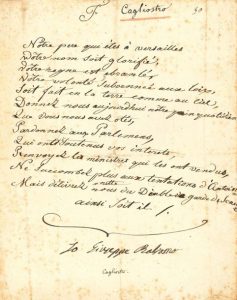 F Cagliostro 30
Nôtre pere que êtes à versailles
Vôtre nom soit glorifié,
Vôtre regne est ébranlé,
Vôtre volonté
Soit fait en la terre comme au ciel,
Donnez nous aujourd'hui nôtre pain quotidien
Que vous nous avez otés,
Pardonnez aux Parlemens,
Qui ont soutenus vos interets
Renvoyez les ministres qui les ont vendus,
Ne succombez plus aux tentations d'
Mais délivrez nous du Diable
ainsi soit il.
Io Giuseppe Balsamo
Cagliostro.